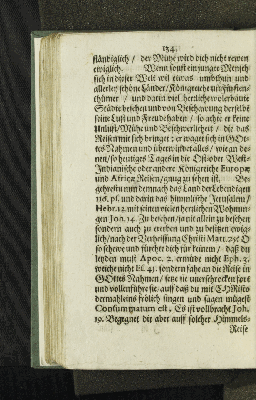 154.
ständiglich / der Mühe wird dich nicht reuen
ewiglich. Wenn sonst ein junger Mensch
sich in dieser Welt wil etwas umbthun und
allerley schöne Länder / Königreiche und Fürsten-
thümer / und darin viel herrliche wolerbaute
Städte besehen und von Beschauung derselbē
seine Lust und Freude haben / so achtet er keine
Unlust / Mühe und Beschwerlichkeit / die das
Reisen mit sich bringet: er waget sich in GOt-
tes Nahmen und überwindet alles / wie an de-
nen / so heutiges Tages in die Ost- oder West-
Indianische oder andere Königreiche Europæ
und Africæ Reisen / gnug zu sehen ist. Be-
gehrestu nun demnach das Land der Lebendigen
116. pſ. und darin das himmlische Jerusalem /
Hebr. 12. mit seinen vielen herrlichen Wohnun-
gen Joh. 14. Zu beschen / ja nit allein zu besehen
sondern auch zu ererben und zu besitzen ewig-
lich / nach der Verheissung Christi Matt. 25. O
so scheue und fürchte dich für keinem / daß du
leyden must Apoc. 2. ermüde nicht Eph. 3.
weiche nicht Es. 41. sondern fahe an die Reise in
GOttes Nahmen / setze sie unerschrocken fort
und vollenführe sie / auff daß du mit CHRisto
dermahleins frölich singen und sagen mögest
Consummatum est, Es ist vollbracht Joh.
19. Begegnet dir aber auff solcher Himmels-
Reise